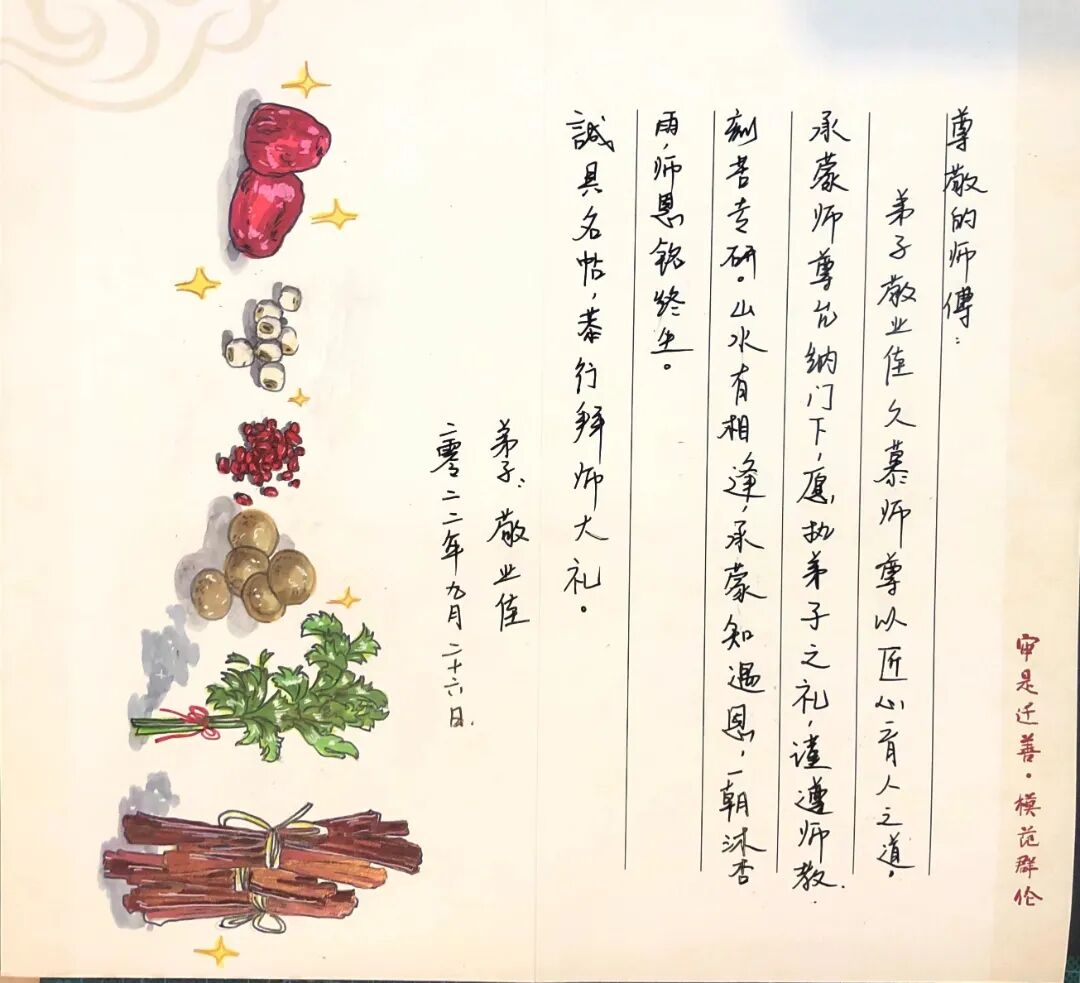 审是迁善。模范群伦
尊敬的师傅:
弟子敬业佳久慕师尊以匠心育人之道。
承蒙师尊允纳门下,愿执弟子之礼,谨遵师教.
刻苦专研。山水有相逢,承蒙知遇恩,一朝沐杏
雨,师恩铭终生。
誠具名帖,恭行拜师大礼。
弟子:敬业佳
二零二二年九月二十六日.